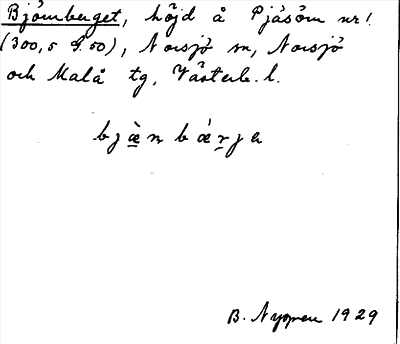 Björnberget, höjd å Pjäsörn nr 1
(300,5 9.50), Norsjö sn, Norsjö
och Malå tg, Västerb. l.
bjæ̀n bǽrje
B. Nygren 1929